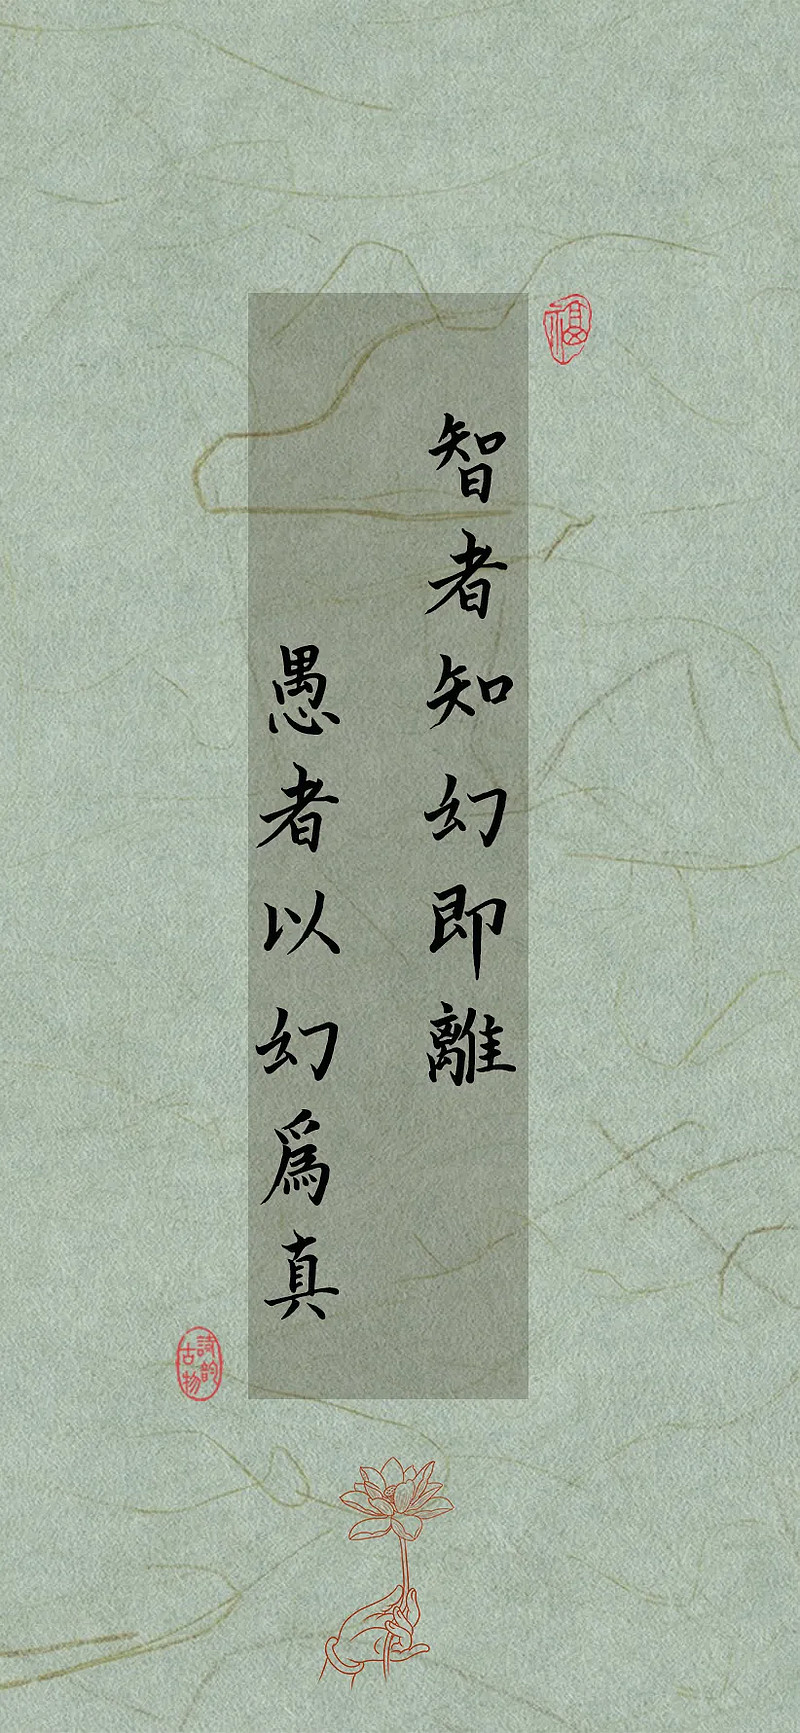 福
智者知幻即離
愚者以幻爲真
詩韵
古物